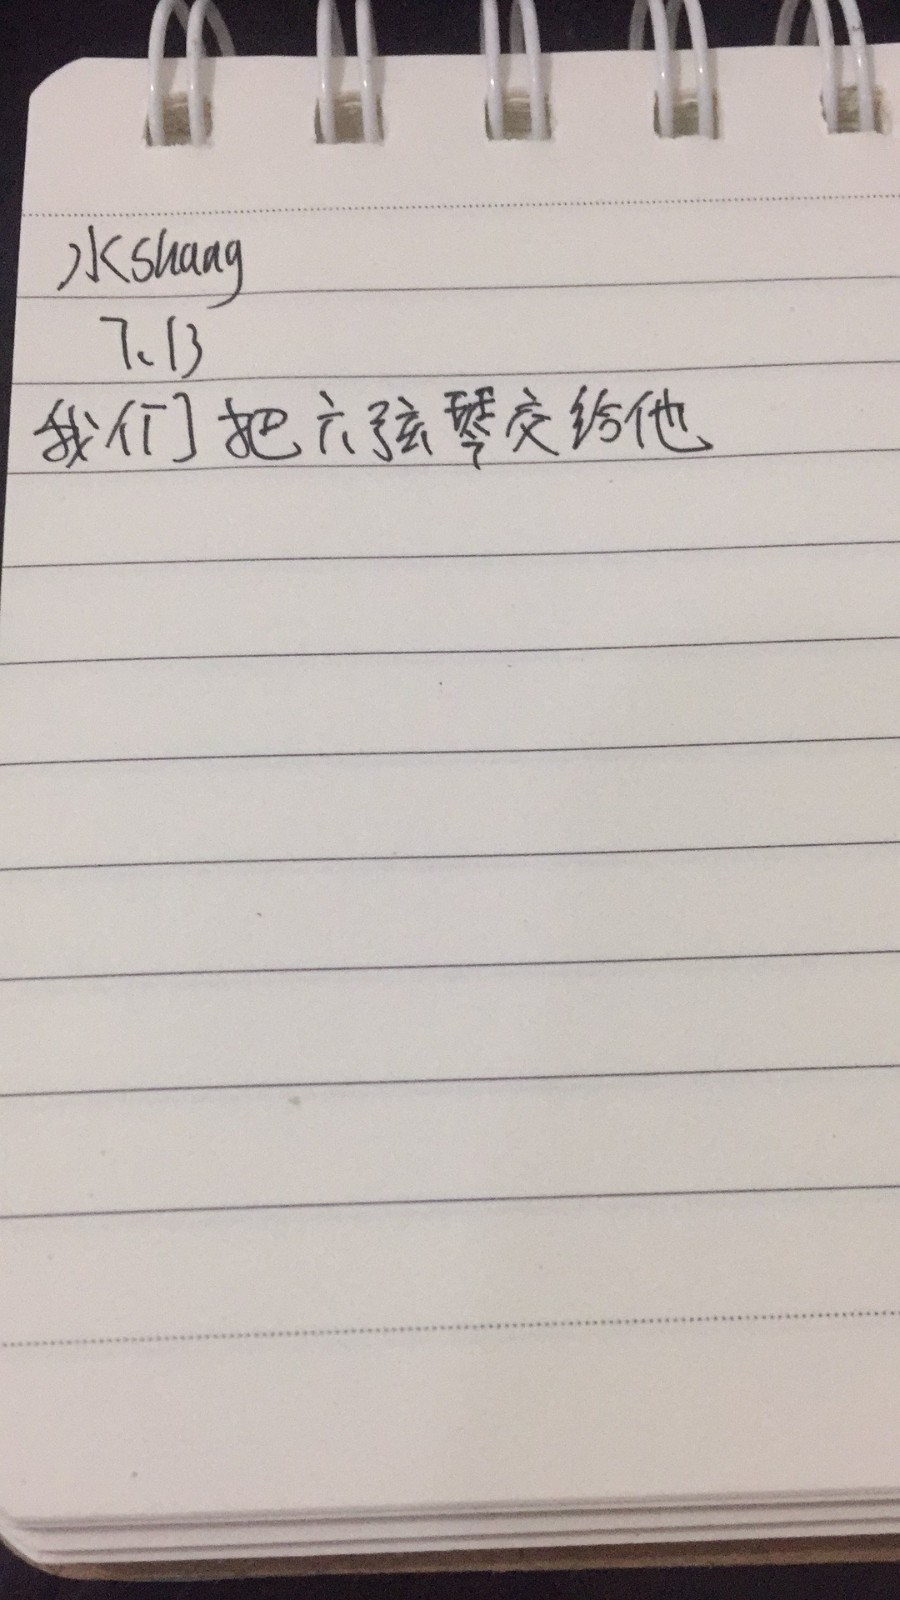 水shang
7、13
我们把六弦琴交给他